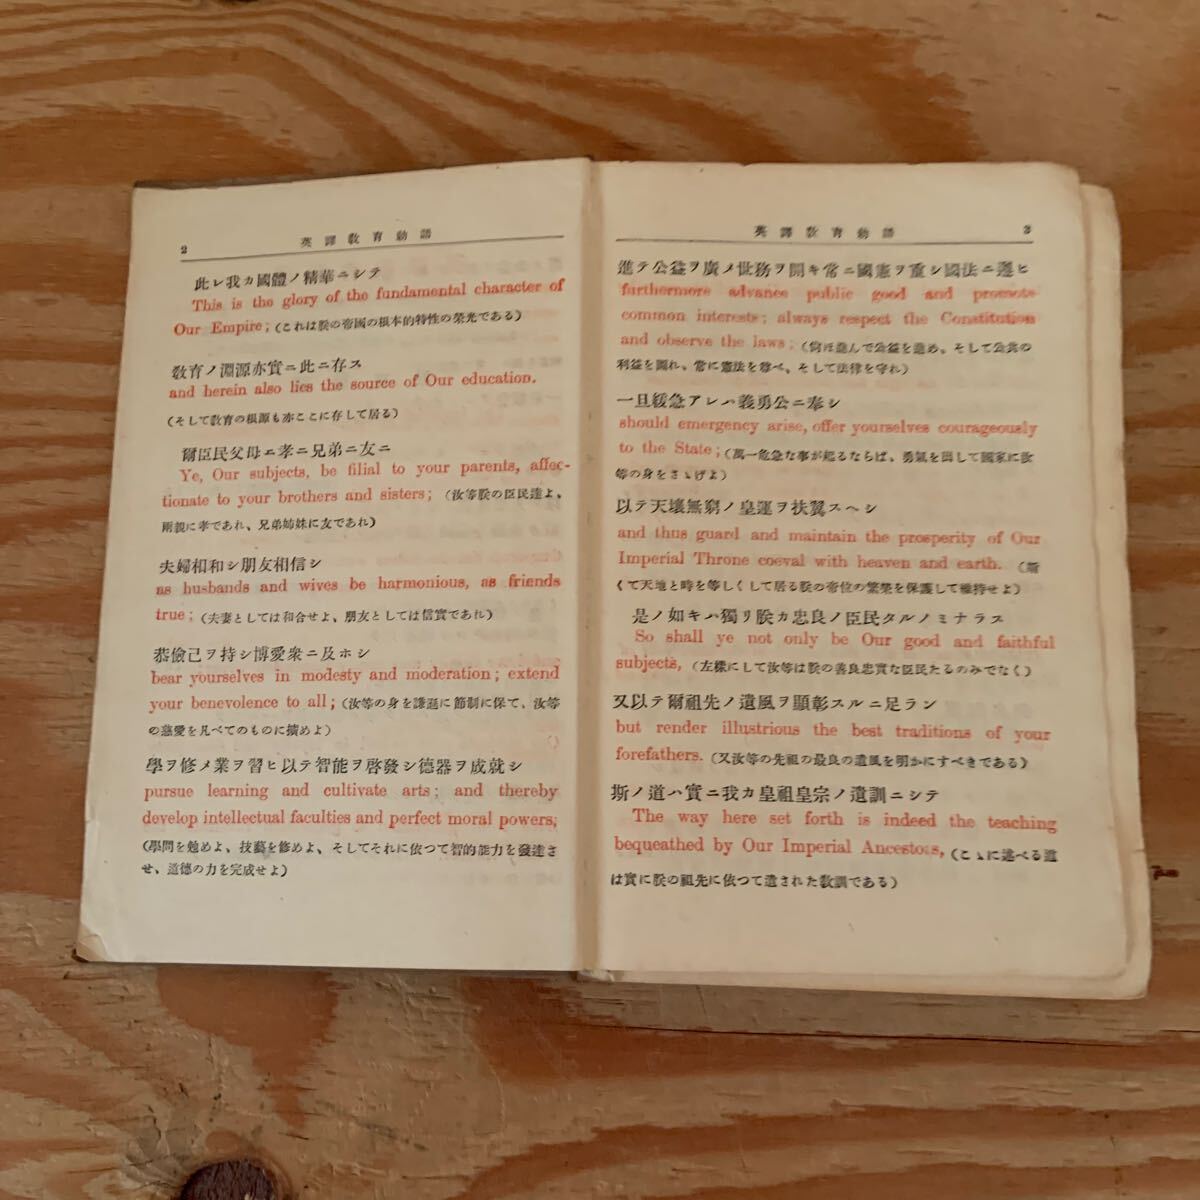 2
英譯敎育勅語
此レ我カ國體ノ精華ニシテ
This is the glory of the fundamental character of
Our Empire; (これは朕の帝國の根本的特性の榮光である)
敎育ノ淵源亦實ニ此ニ存ス
and herein also lies the source of Our education.
(そして敎育の根源も亦ここに存して居る)
爾臣民父母ニ孝ニ兄弟ニ友ニ
Ye, Our subjects, be filial to your parents, affec-
tionate to your brothers and sisters; (汝等朕の臣民達よ、
兩親に孝であれ、兄弟姉妹に友であれ)
夫婦相和シ朋友相信シ
as husbands and wives be harmonious, as friends
true; (夫妻としては和合せよ、朋友としては信實であれ)
恭儉己ヲ持シ博愛衆ニ及ホシ
bear yourselves in modesty and moderation; extend
your benevolence to all; (汝等の身を謙遜に節制に保て、汝等
の慈愛を凡べてのものに擴めよ)
學ヲ修メ業ヲ習ヒ以テ智能ヲ啓發シ德器ヲ成就シ
pursue learning and cultivate arts; and thereby
develop intellectual faculties and perfect moral powers;
(學問を勉めよ、技藝を修めよ、そしてそれに依つて智的能力を發達さ
せ、道德の力を完成せよ)
英譯敎育勅語
3
進テ公益ヲ廣メ世務ヲ開キ常ニ國憲ヲ重シ國法ニ遵ヒ
furthermore advance public good and promote
common interests; always respect the Constitution
and observe the laws; (尙ほ進んで公益を進め、そして公共の
利益を圖れ、常に憲法を尊べ、そして法律を守れ)
一旦緩急アレハ義勇公ニ奉シ
should emergency arise, offer yourselves courageously
to the State; (萬一危急な事が起るならば、勇氣を出して國家に汝
等の身をさゝげよ)
以テ天壤無窮ノ皇運ヲ扶翼スヘシ
and thus guard and maintain the prosperity of Our
Imperial Throne coeval with heaven and earth. (斯
くて天地と時を等しくして居る朕の帝位の繁榮を保護して維持せよ)
是ノ如キハ獨リ朕カ忠良ノ臣民タルノミナラス
So shall ye not only be Our good and faithful
subjects, (左樣にして汝等は朕の善良忠實な臣民たるのみでなく)
又以テ爾祖先ノ遺風ヲ顯彰スルニ足ラン
but render illustrious the best traditions of your
forefathers. (又汝等の先祖の最良の遺風を明かにすべきである)
斯ノ道ハ實ニ我カ皇祖皇宗ノ遺訓ニシテ
The way here set forth is indeed the teaching
bequeathed by Our Imperial Ancestors, (こゝに述べる道
は實に朕の祖先に依つて遺された敎訓である)